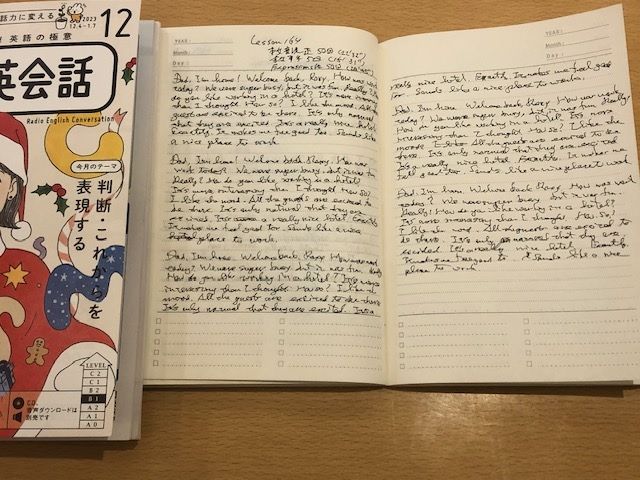 話力に変える
2023
12.4→1.7
12
英語の極意
英会話
Radio English Conversation
今月のテーマ
判断・これからを
表現する
LEVEL
C2
C1
B2
B1
A2
A1
A0
CD、
音声ダウンロードは
別売です
YEAR:
Month:
Day:
Lesson 164
50回 (22'32")
5回
Dad, I'm home! Welcome back, Roxy. How was work
today? We were super busy, but it was fun. Really?
do you like working in a hotel? It's more interesting
than I thought. How so? I like the mood. All the
guests are excited to be there. It's only natural
that they are excited. It's a really nice hotel.
Exactly. It makes me feel good too. Sounds like
a nice place to work.
Dad, I'm home! Welcome back, Roxy. How was
work today? We were super busy, but it was fun
Really? How do you like working in a hotel?
It's more interesting than I thought. How so?
I like the mood. All the guests are excited to
be there. It's only natural that they are
excited. It's a really nice hotel. Exactly.
It makes me feel good too. Sounds like a nice
place to work.
Dad, I'm home. Welcome back, Roxy. How was work
today? We were super busy but it was fun. Really?
How do you like working in a hotel? It's more
interesting than I thought. How so? I like the
mood. All the guests are excited to be there
It's only normal that they are excited. It's a
YEAR:
Month:
Day:
really nice hotel. Exactly. It makes me feel good
too. Sounds like a nice place to work.
Dad, I'm home. Welcome back, Roxy. How was work
today? We were super busy but it was fun. Really?
How do you like working in a hotel. It's more
interesting than I thought. How so? I like the
mood. All the guests are excited to be
there. It's only natural they are excited
It's a really nice hotel. Exactly. It makes me
feel good too. Sounds like a nice place to work
Dad, I'm home. Welcome back Roxy. How was work
today? We were super busy but it was fun.
Really? How do you like working in a hotel?
It's more interesting than I thought. How so?
I like the mood. All the guests are excited to
be there. It's only natural that they are
excited. It's a really nice hotel. Exactly.
It makes me feel good too. Sounds like a nice
place to work